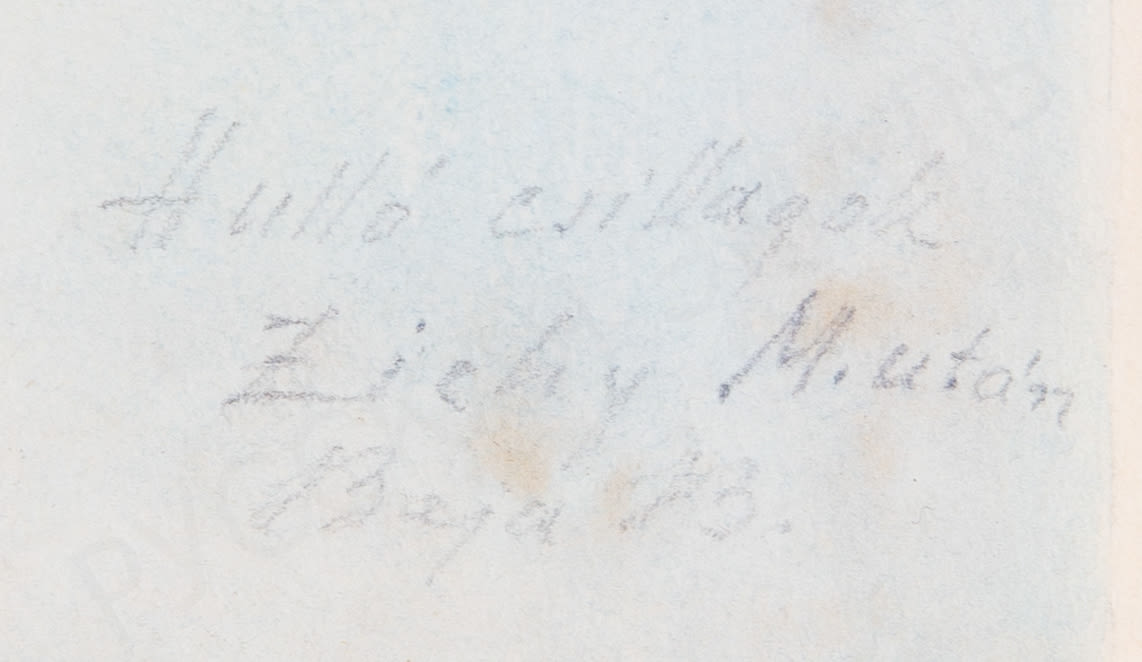 Hulló csillagok
Zichy M. után
Baja B.